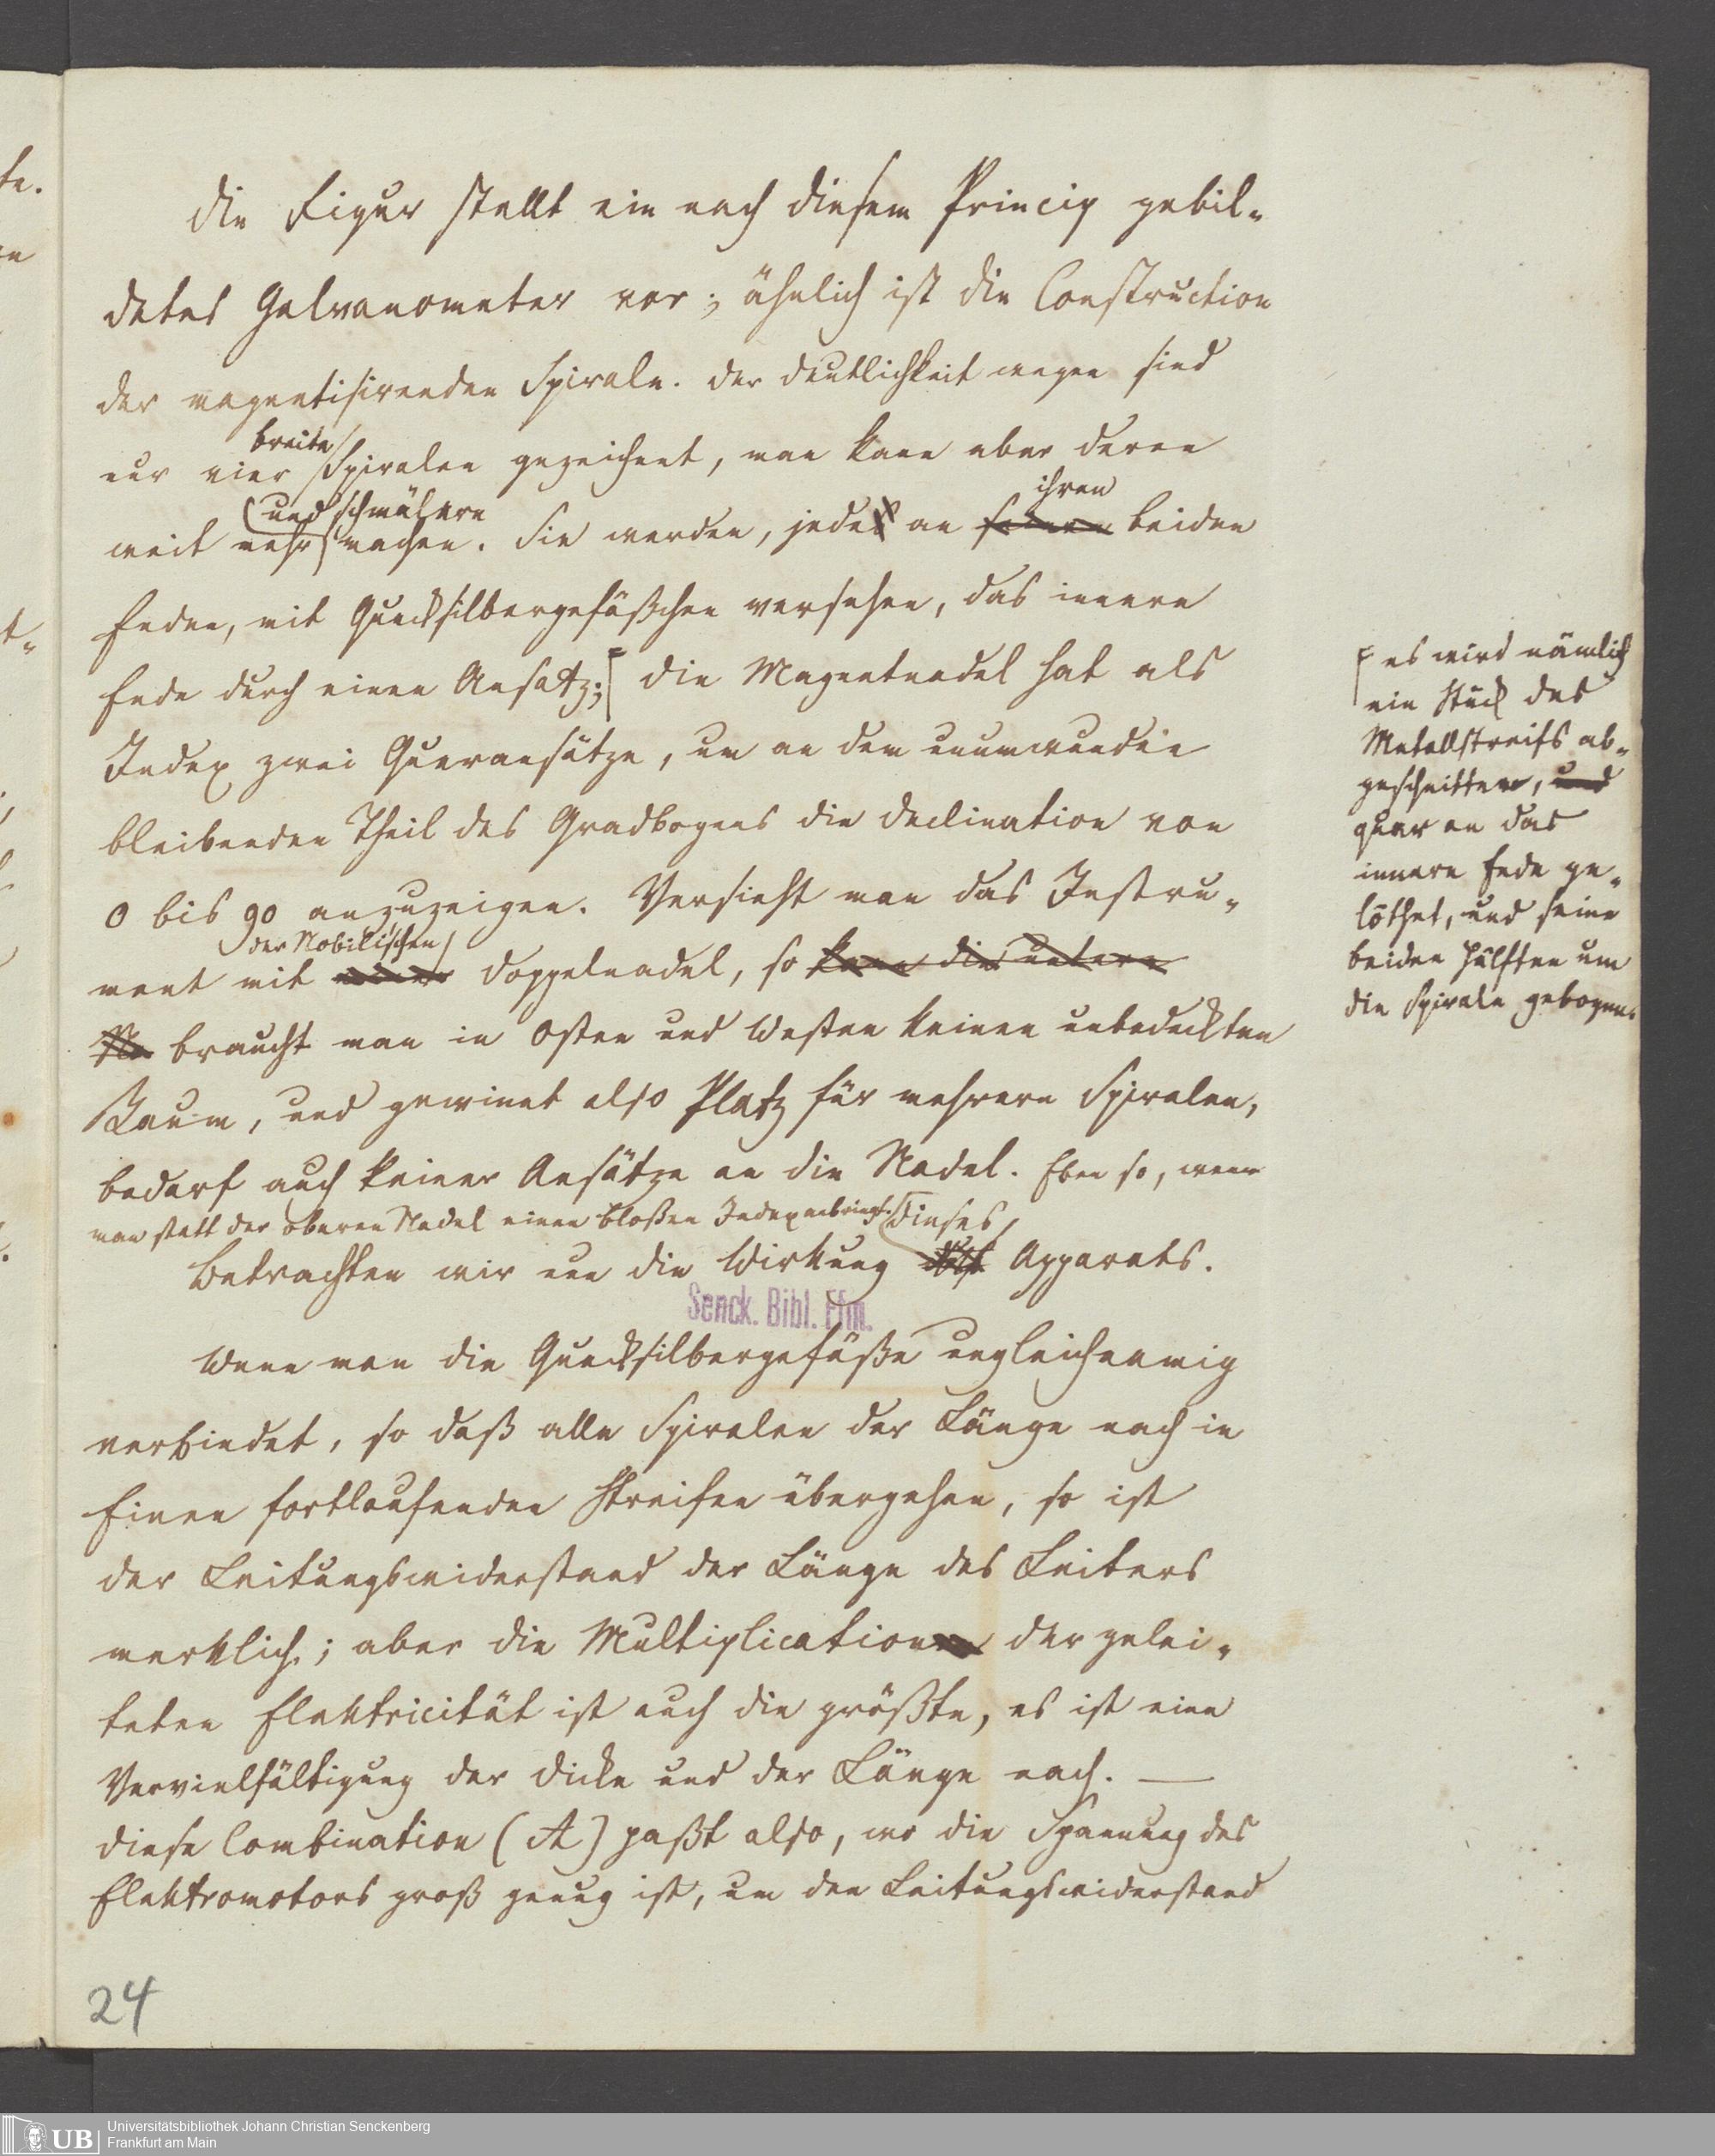 Die Figur stellt ein nach diesem Princip gebil-
detes Galvanometer vor; ähnlich ist die Construction
der magnetisirenden Spirale. Der Deutlichkeit wegen sind
breite
nur vier Spiralen gezeichnet, man kann aber deren
und schmälere
ihren
weit mehr machen. Sie werden, jede an seinen beiden
Enden, mit Quecksilbergefäßchen versehen, das innere
Ende durch einen Ansatz; die Magnetnadel hat als
Index zwei Queransätze, um an dem unumwunden
bleibenden Theil des Gradbogens die Declination von
0 bis 90 anzuzeigen. Versieht man das Instru-
der Nobilischen
ment mit einer Doppelnadel, so kann die untere
Na braucht man in Osten und Westen keinen unbedeckten
Raum, und gewinnt also Platz für mehrere Spiralen,
bedarf auch keiner Ansätze an die Nadel. Eben so, wenn
man statt der oberen Nadel einen bloßen Index anbringt.
dieses
Betrachten wir nun die Wirkung Apparats.
Senck. Bibl. Ffm.
Wenn man die Quecksilbergefäße ungleichnamig
verbindet, so daß alle Spiralen der Länge nach in
Einen fortlaufenden Streifen übergehen, so ist
der Leitungswiderstand der Länge des Leiters
merklich; aber die Multiplication der gelei-
teten Elektricität ist auch die größte, es ist eine
Vervielfältigung der Dicke und der Länge nach. —
Diese Combination (A) paßt also, wo die Spannung des
Elektromotors groß genug ist, um den Leitungswiderstand
24
es wird nämlich
ein Stück des
Metallstreifs ab-
geschnitten, und
quer an das
innere Ende ge-
löthet, und seine
beiden Hälften um
die Spirale gebogen.
te.
t-
UB
Universitätsbibliothek Johann Christian Senckenberg
Frankfurt am Main